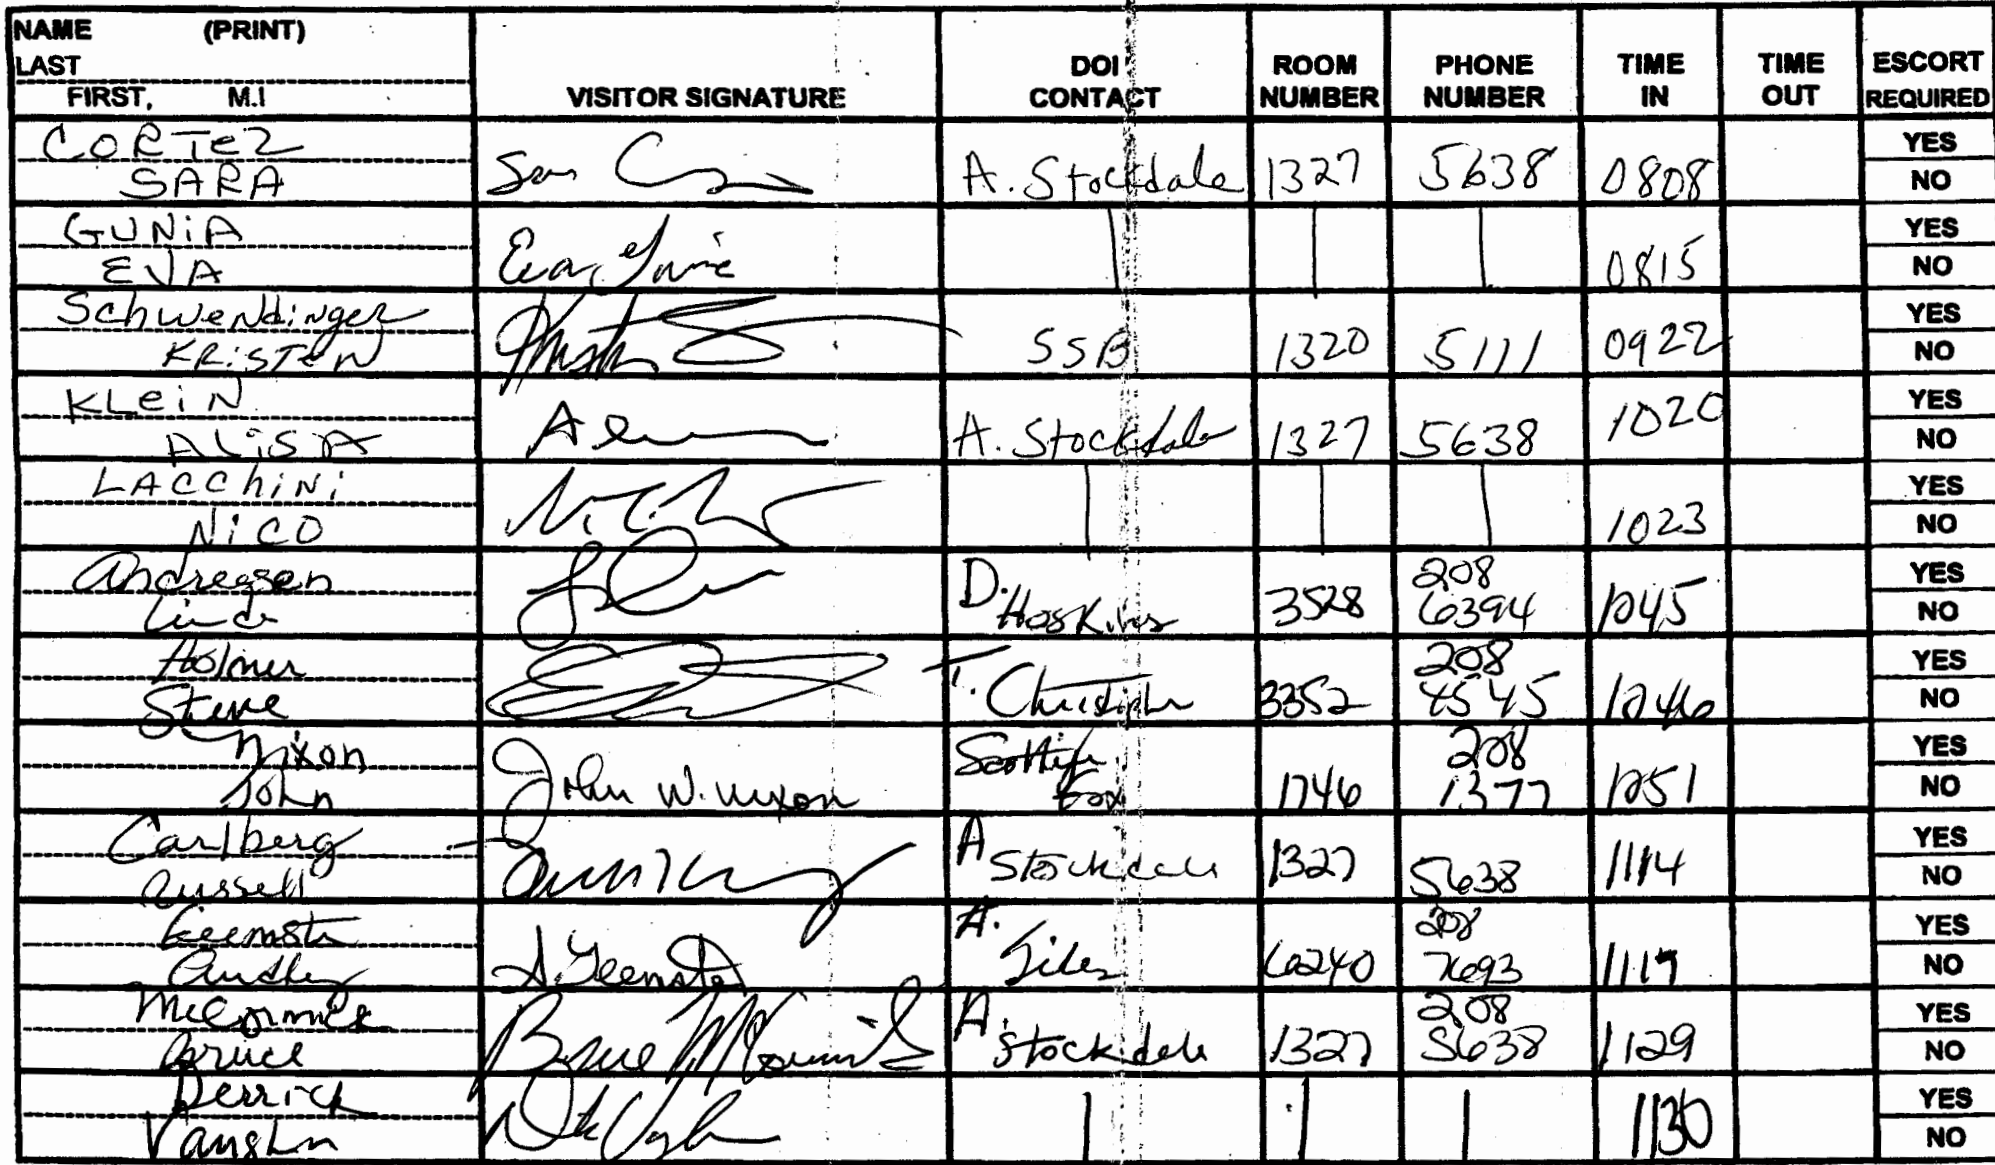 NAME (PRINT)
LAST
FIRST, M.I
VISITOR SIGNATURE
DOI CONTACT
ROOM NUMBER
PHONE NUMBER
TIME IN
TIME OUT
ESCORT REQUIRED
CORTEZ
SARA
A. Stockdale 1327 5638 0808
YES
NO
GUNIA
EVA
0815
YES
NO
Schwendinger
KRISTEN
SSB 1320 5111 0922
YES
NO
KLEIN
ALISA
A. Stockdale 1327 5638 1020
YES
NO
LACCHINI
NICO
1023
YES
NO
Andreasen
Linda
D. Hoskins 3528 208 6394 1045
YES
NO
Holmer
Steve
T. Christopher 3352 208 4545 1046
YES
NO
Nixon
John
John W. Nixon
Fox 1746 208 1377 1051
YES
NO
Carlberg
Russell
A Stockdale 1327 5638 1114
YES
NO
A. Giles 6240 208 7693 1119
YES
NO
McCormick
Bruce
Bruce McCormick
A. Stockdale 1327 208 5638 1129
YES
NO
Derrick
Vaughn
1130
YES
NO